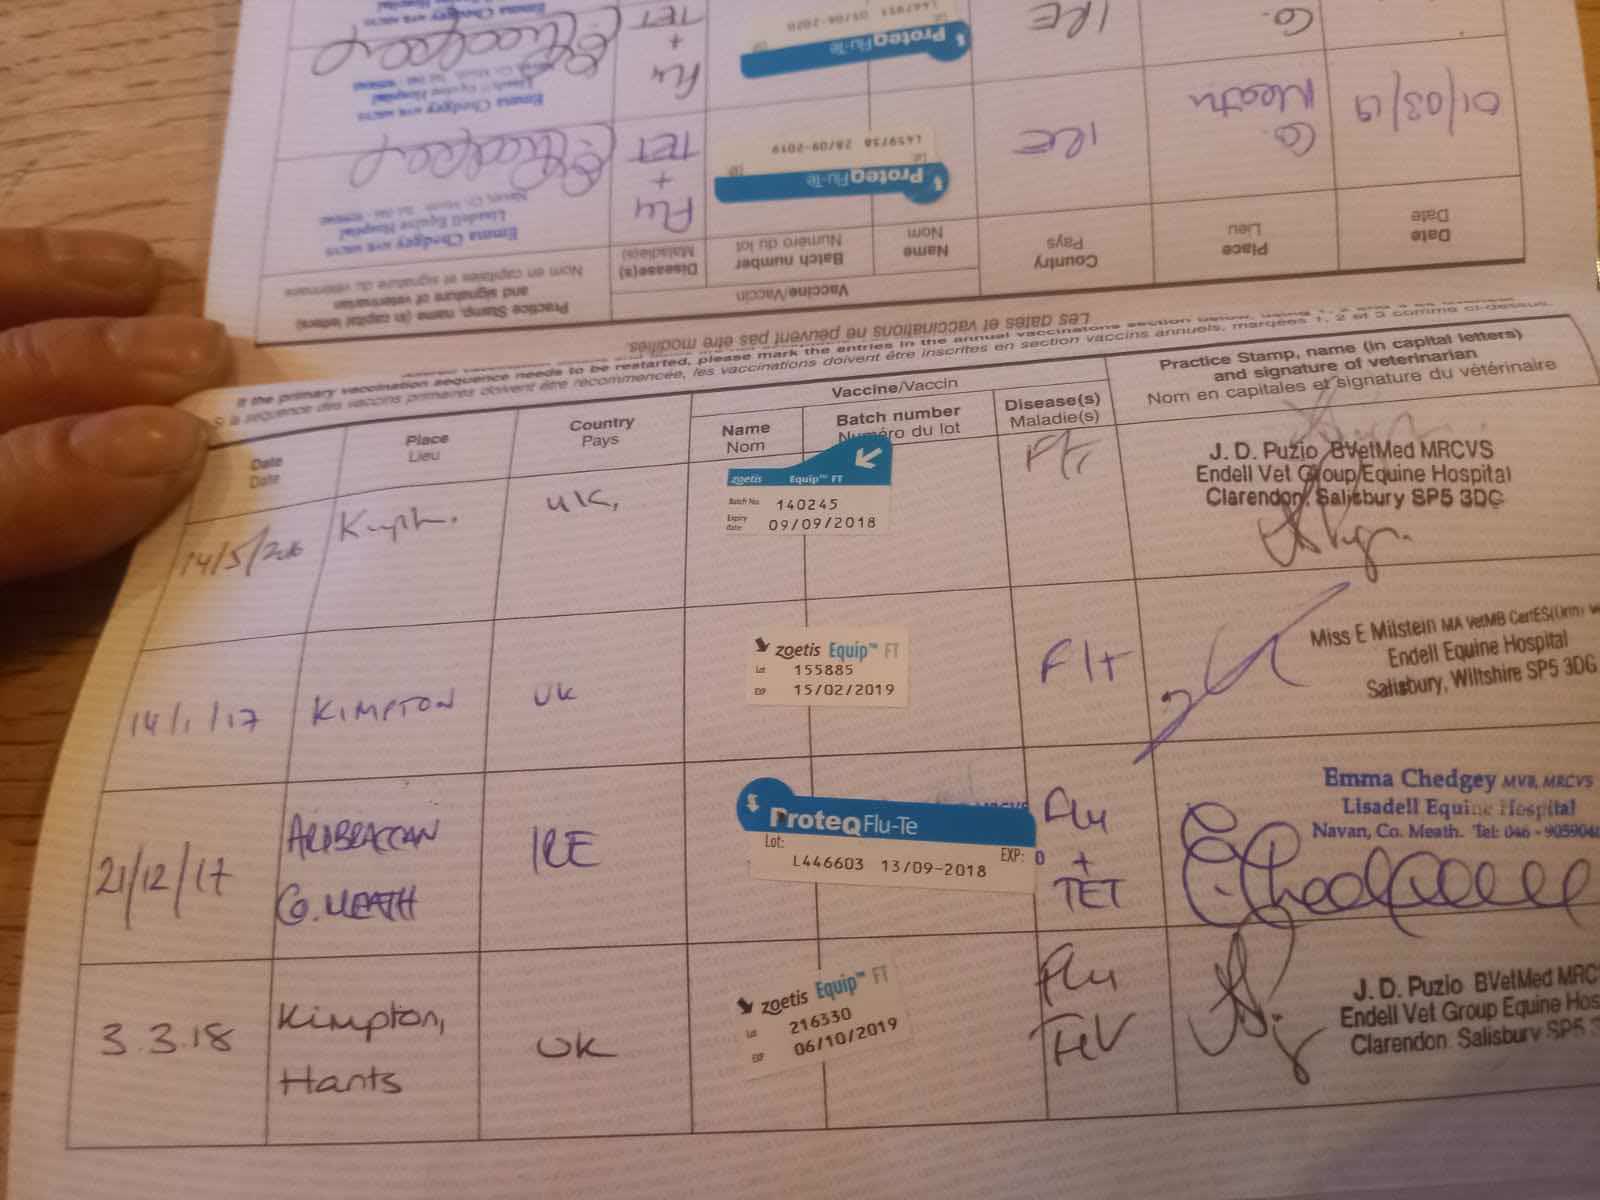 If the primary vaccination sequence needs to be restarted, please mark the entries in the annual vaccinations section below, using 1, 2 and 3 as
Si la séquence des vaccins primaires doivent être recommencée, les vaccinations doivent être inscrites en section vaccins annuels, marquées 1, 2 et 3 comme ci-dessus.
Date
Date
Place
Lieu
Country
Pays
Vaccine/Vaccin
Name
Nom
Batch number
Numéro du lot
Disease(s)
Maladie(s)
Practice Stamp, name (in capital letters)
and signature of veterinarian
Nom en capitales et signature du vétérinaire
14/5/2016
UK.
zoetis Equip™ FT
Batch No. 140245
Expiry date 09/09/2018
J. D. Puzio BVetMed MRCVS
Endell Vet Group Equine Hospital
Clarendon, Salisbury SP5 3DG
14/1/17
KIMPTON
UK
zoetis Equip™ FT
Lot 155885
EXP 15/02/2019
Miss E Milstein MA VetMB CertES(Orth)
Endell Equine Hospital
Salisbury, Wiltshire SP5 3DG
21/12/17
CO. MEATH
IRE
ProteqFlu-Te
Lot:
EXP:
L446603 13/09-2018
Flu
+
TET
Emma Chedgey MVB, MRCVS
Lisadell Equine Hospital
Navan, Co. Meath. Tel: 046 - 905904
3.3.18
Kimpton,
Hants
UK
zoetis Equip™ FT
Lot 216330
EXP 06/10/2019
Flu
J. D. Puzio BVetMed MRC
Endell Vet Group Equine Hos
Clarendon. Salisbury SP5
Les dates et vaccinations ne peuvent pas être modifiés.
Date
Date
Place
Lieu
Country
Pays
Vaccine/Vaccin
Name
Nom
Batch number
Numéro du lot
Disease(s)
Maladie(s)
Practice Stamp, name (in capital letters)
and signature of veterinarian
Nom en capitales et signature du vétérinaire
01/03/19
Co.
Meath
IRE
ProteqFlu-Te
Lot
L459738 28/09-2019
Flu
+
TET
Emma Chedgey MVB MRCVS
Lisadell Equine Hospital
Co.
IRE
ProteqFlu-Te
Flu
+
TET
Emma Chedgey MVB MRCVS
Lisadell Equine Hospital